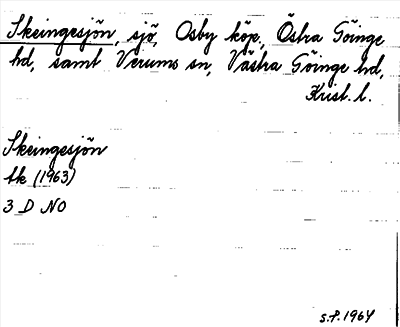 Skeingesjön, sjö, Osby köp., Östra Göinge
hd, samt Verums sn, Västra Göinge hd,
Krist. l.
Skeingesjön
tk (1963)
3 D NO
S.P. 1964